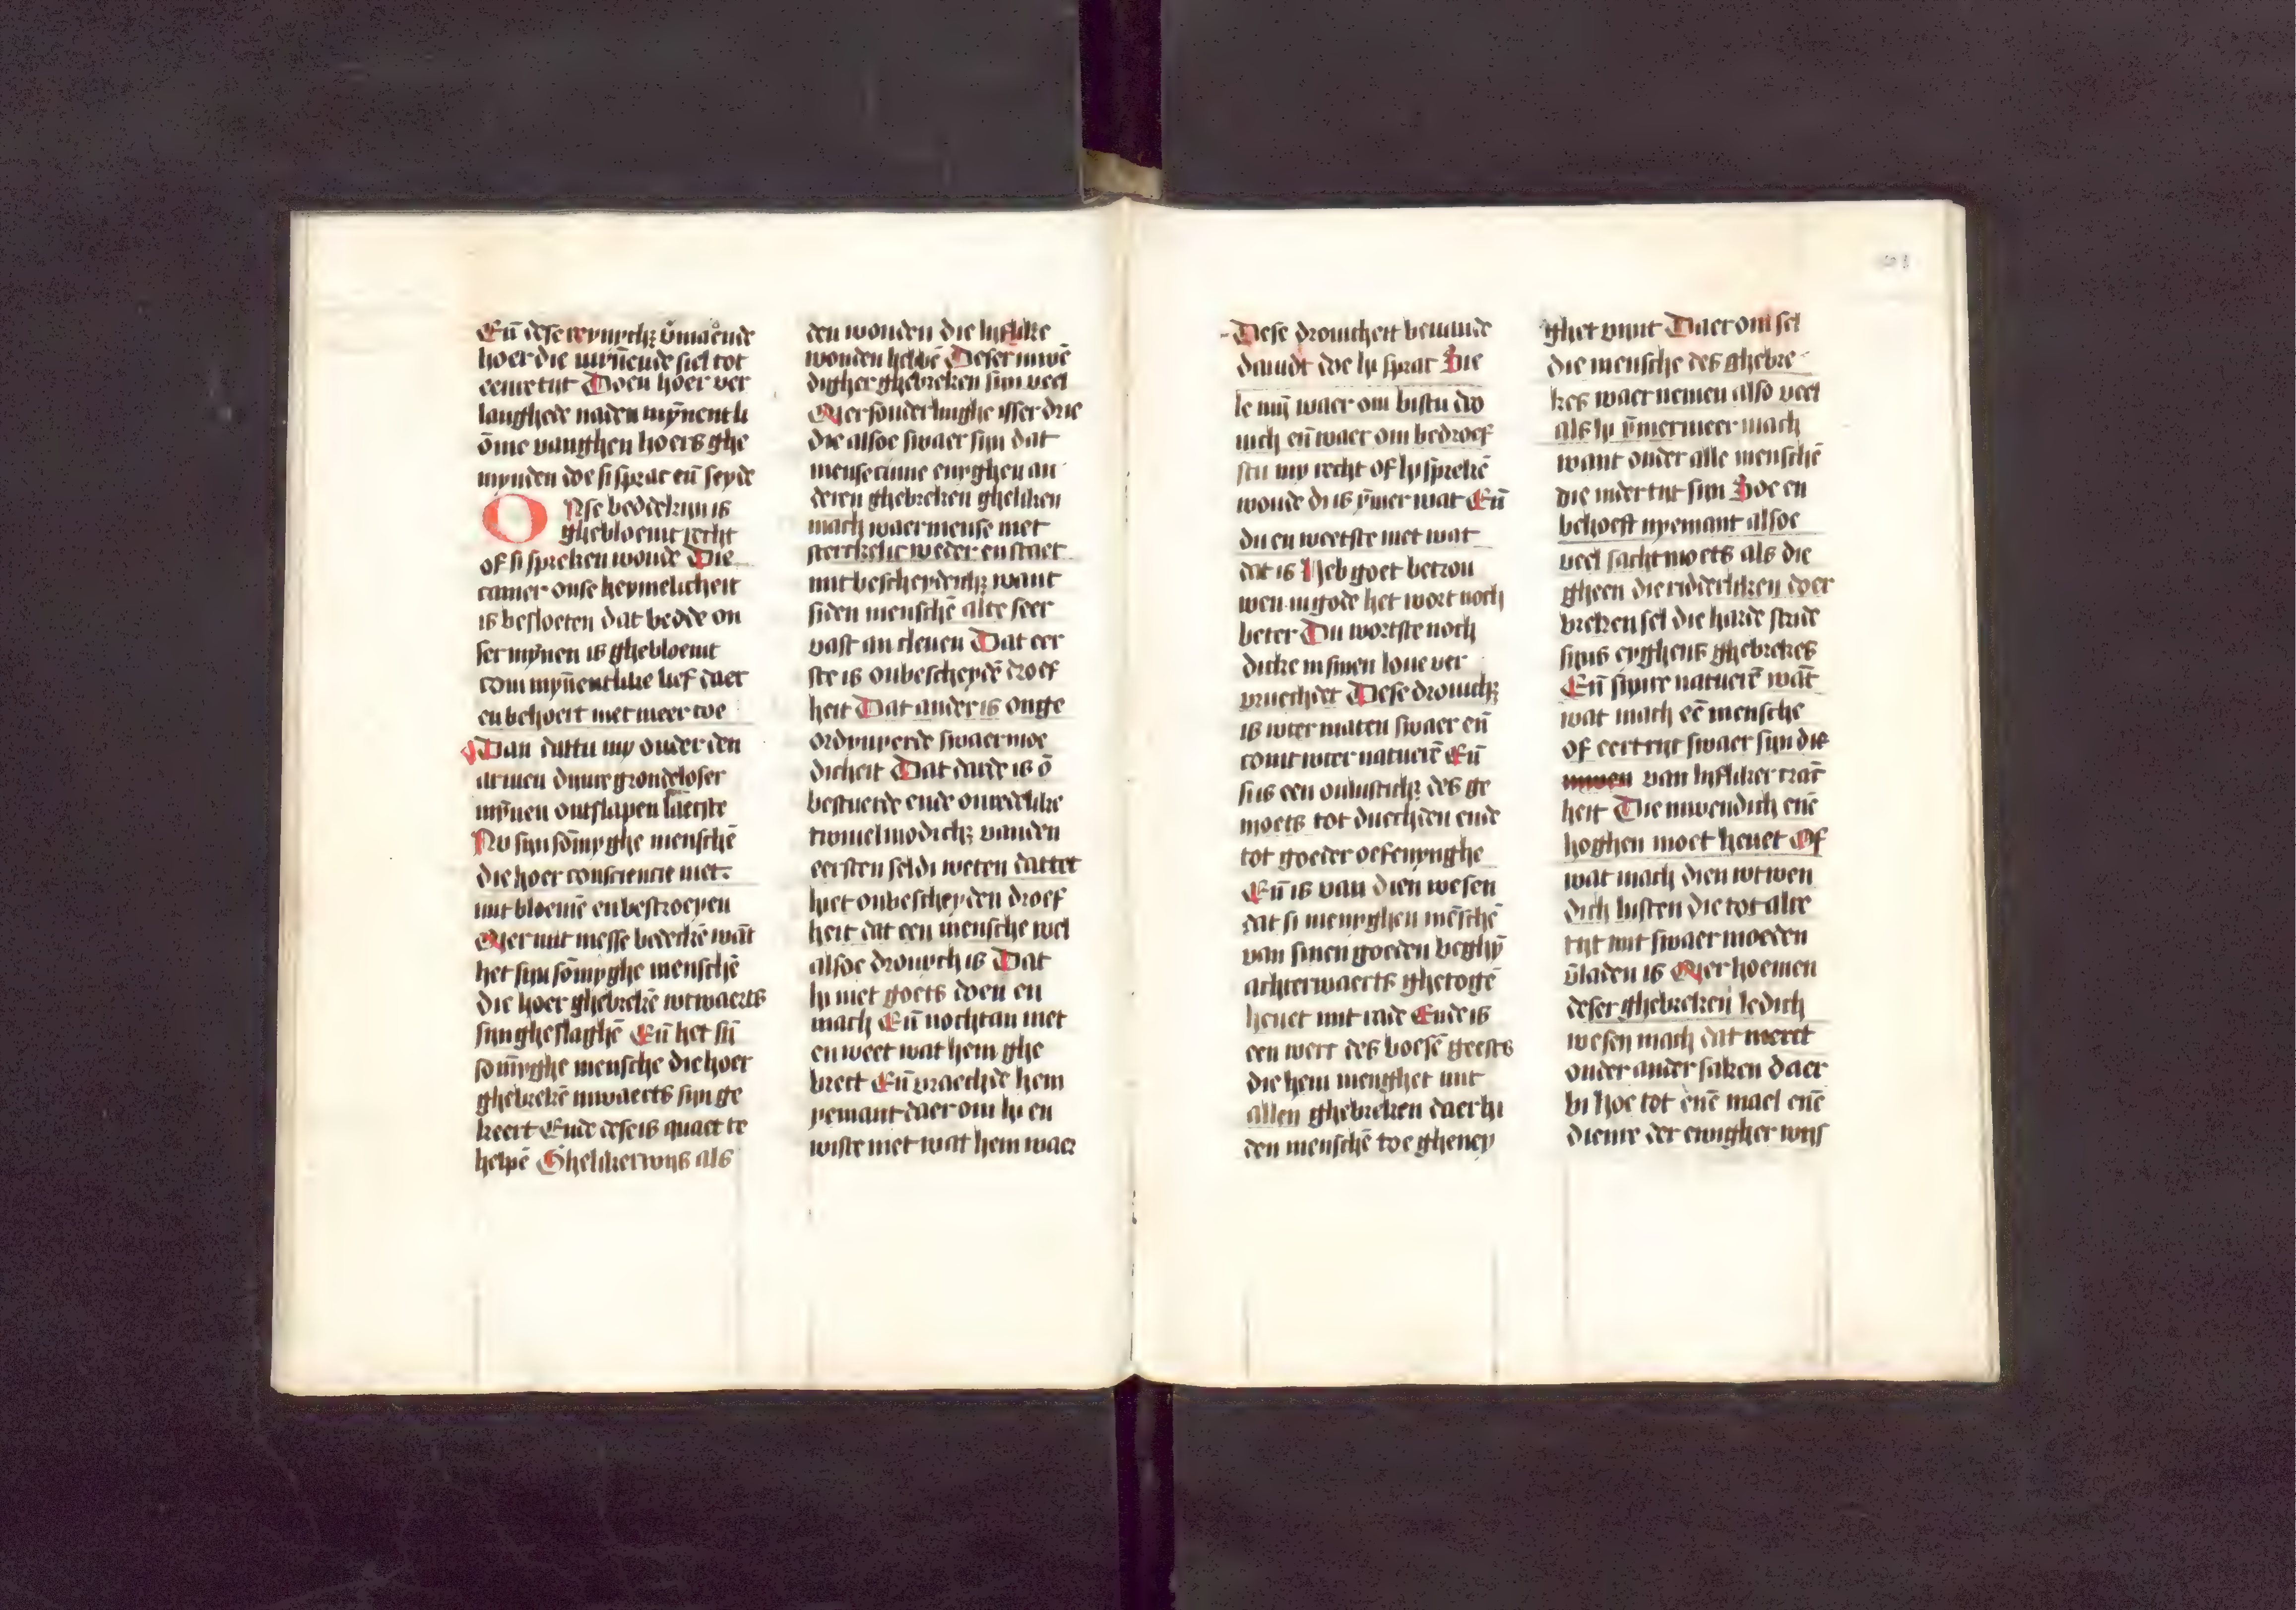 Eñ dese reynich; v̄maende
hoer die myn̄ende siel tot
eenre tijt Doen hoer ver
langhede naden myn̄entli
ōme vanghen hoers ghe
mynden doe si sprac en̄ seyde
Onse beddekijn is
ghebloemt recht
of si spreken woude Die
camer onse heymelicheit
is besloeten dat bedde on
ser mynen is ghebloemt
com myn̄entlike lief daer
en behoert niet meer toe
Dan dattu my onder den
armen dijnre grondeloser
myn̄en ontslapen laetste
Nv sijn sōmyghe menschē
die hoer consciencie niet
mit bloemē en bestroeyen
Mer mit messe bedeckē wāt
het sijn sōmyghe menschē
die hoer ghebrekē wtwaerts
sijn gheslaghē Eñ het sij̄
som̄yghe mensche die hoer
ghebrekē inwaerts sijn ge
keert Ende dese is quaet te
helpē Ghelikerwijs als
den wonden die lyflike
wonden hebbē Deser inwē
digher ghebreken sijn veel
Mer sonderlinghe isser drie
die alsoe swaer sijn dat
mense cume enyghen an
deren ghebreken gheliken
mach waermense met
sterckelic weder en staet
mit bescheydēich; want
siden menschē alte seer
vast an cleuen Dat eer
ste is onbescheydē droef
heit Dat ander is onge
ordynyerde swaermoe
dicheit Dat darde is ō
bestuerde ende onredelike
twiuelmodich; vanden
eersten seldi weten dattet
hiet onbescheyden droef
heit dat een mensche wel
alsoe drouych is Dat
hi niet goets doen en
mach Eñ nochtan niet
en weet wat hem ghe
brect Eñ vraechde hem
yemant daer om hi en
wiste niet wat hem waer
Dese drouicheit beuande
dauidt doe hi sprac Sie
le mij̄ waer om bistu dro
uich en̄ waer om bedroef
stu my recht of hi sprekē
woude di is ȳmer wat Eñ
du en weetste niet wat
dat is Heb goet betrou
wen in gode het wort noch
beter Du wortste noch
dicke in sinen loue ver
vruechdet Dese drouich;
is wter maten swaer en̄
comt wter natuerē Eñ
sijs een onlustich; des ge
moets tot duechden ende
tot goeder oefenynghe
Eñ is van dien wesen
dat si menyghen mēschē
van sinen goeden beghȳ
achterwaerts ghetogē
heuet mit rade Ende is
een werc des boesē geests
die hem menghet mit
allen ghebreken daer hi
den menschē toe gheney
ghet vint Daer om sel
die mensche des ghebre
kes waer nemen also veel
als hi ȳmermeer mach
want onder alle menschē
die inder tijt sijn Soe en
behoeft nyemant alsoe
veel sachtmoets als die
gheen die ridderliken doer
breken sel die harde stride
sijns eyghens ghebrekes
Eñ sijnre natuerē wāt
wat mach eē mensche
of eertrijc swaer sijn die
van lyfliker crāc
heit Die inwendich enē
hoghen moet heuet Of
wat mach dien wtwen
dich lusten die tot alre
tijt mit swaer moeden
v̄laden is Mer hoemen
deser ghebreken ledich
wesen mach dat merct
onder ander saken daer
bi hoe tot enē mael enē
dienre der ewigher wijs